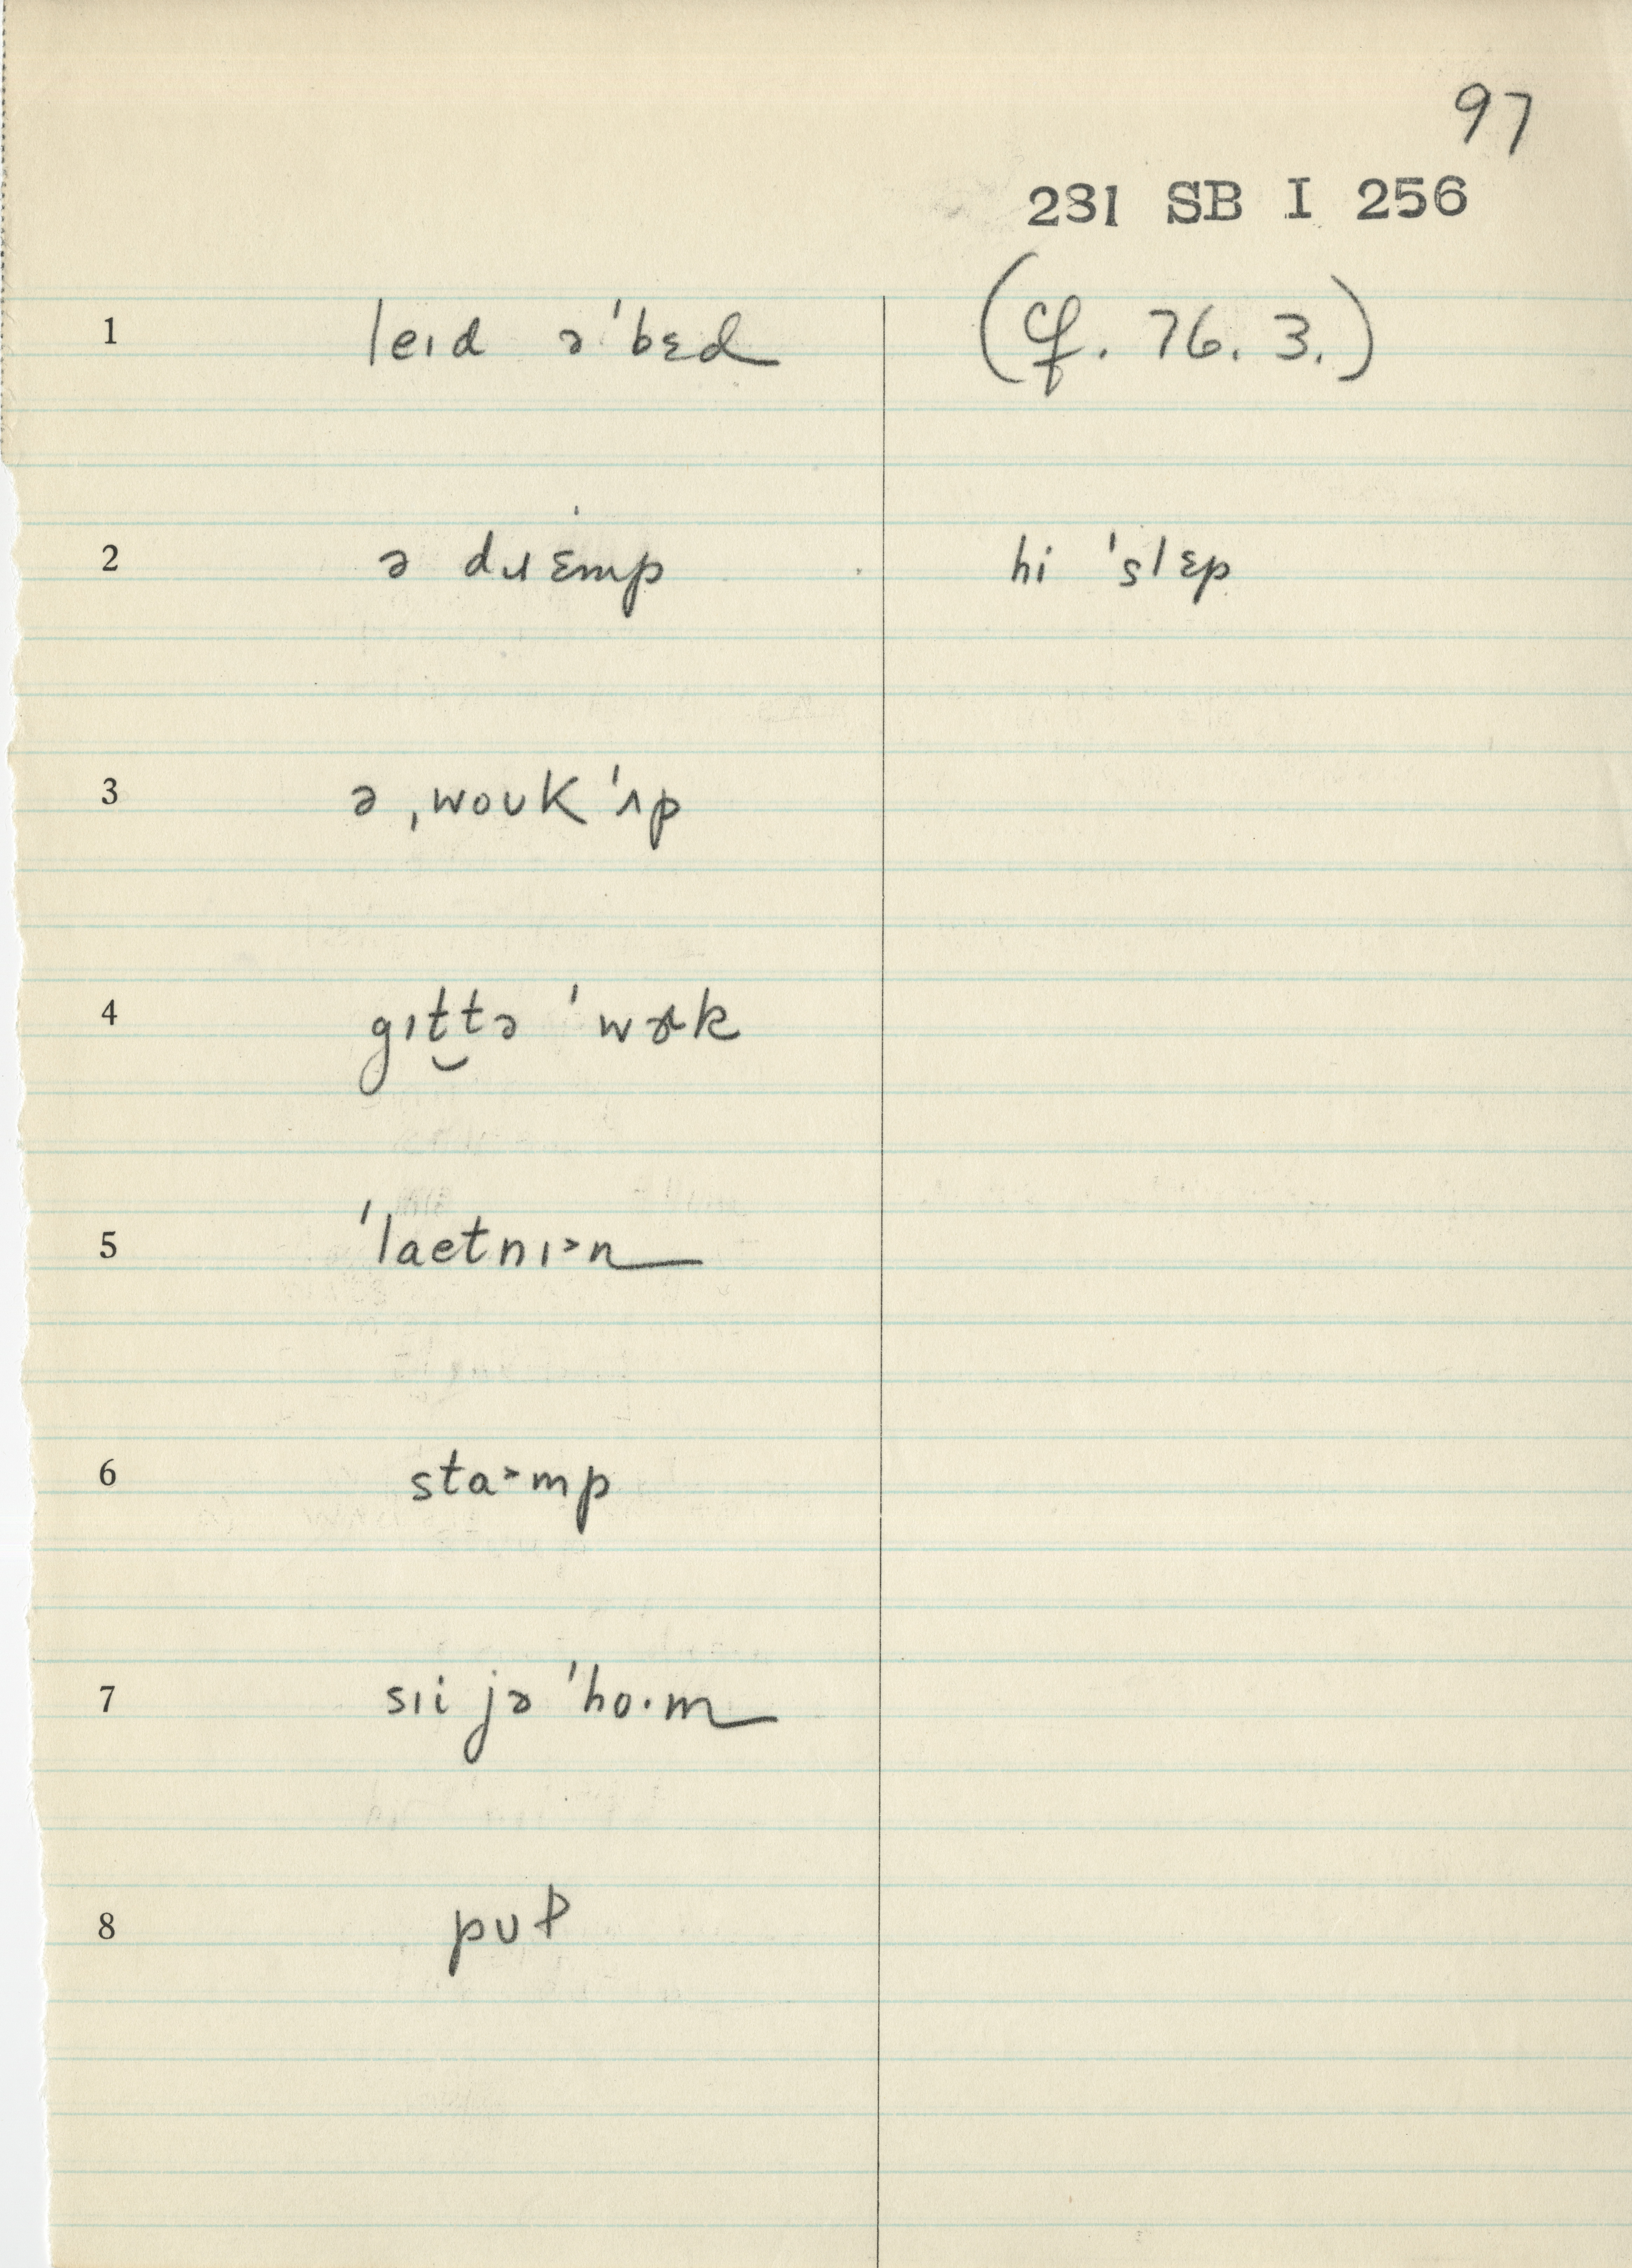 97
231 SB I 256
1 leɪd ə ˈbɛd (cf. 76. 3.)
2 ə dɹɛmp hi ˈslɛp
3 ə ˌwoʊk ˈʌp
4 gɪt‿tə ˈwɚk
5 ˈlaetnɪ˃n
6 sta˃mp
7 sɪi jə ˈho·m
8 pʊɫ